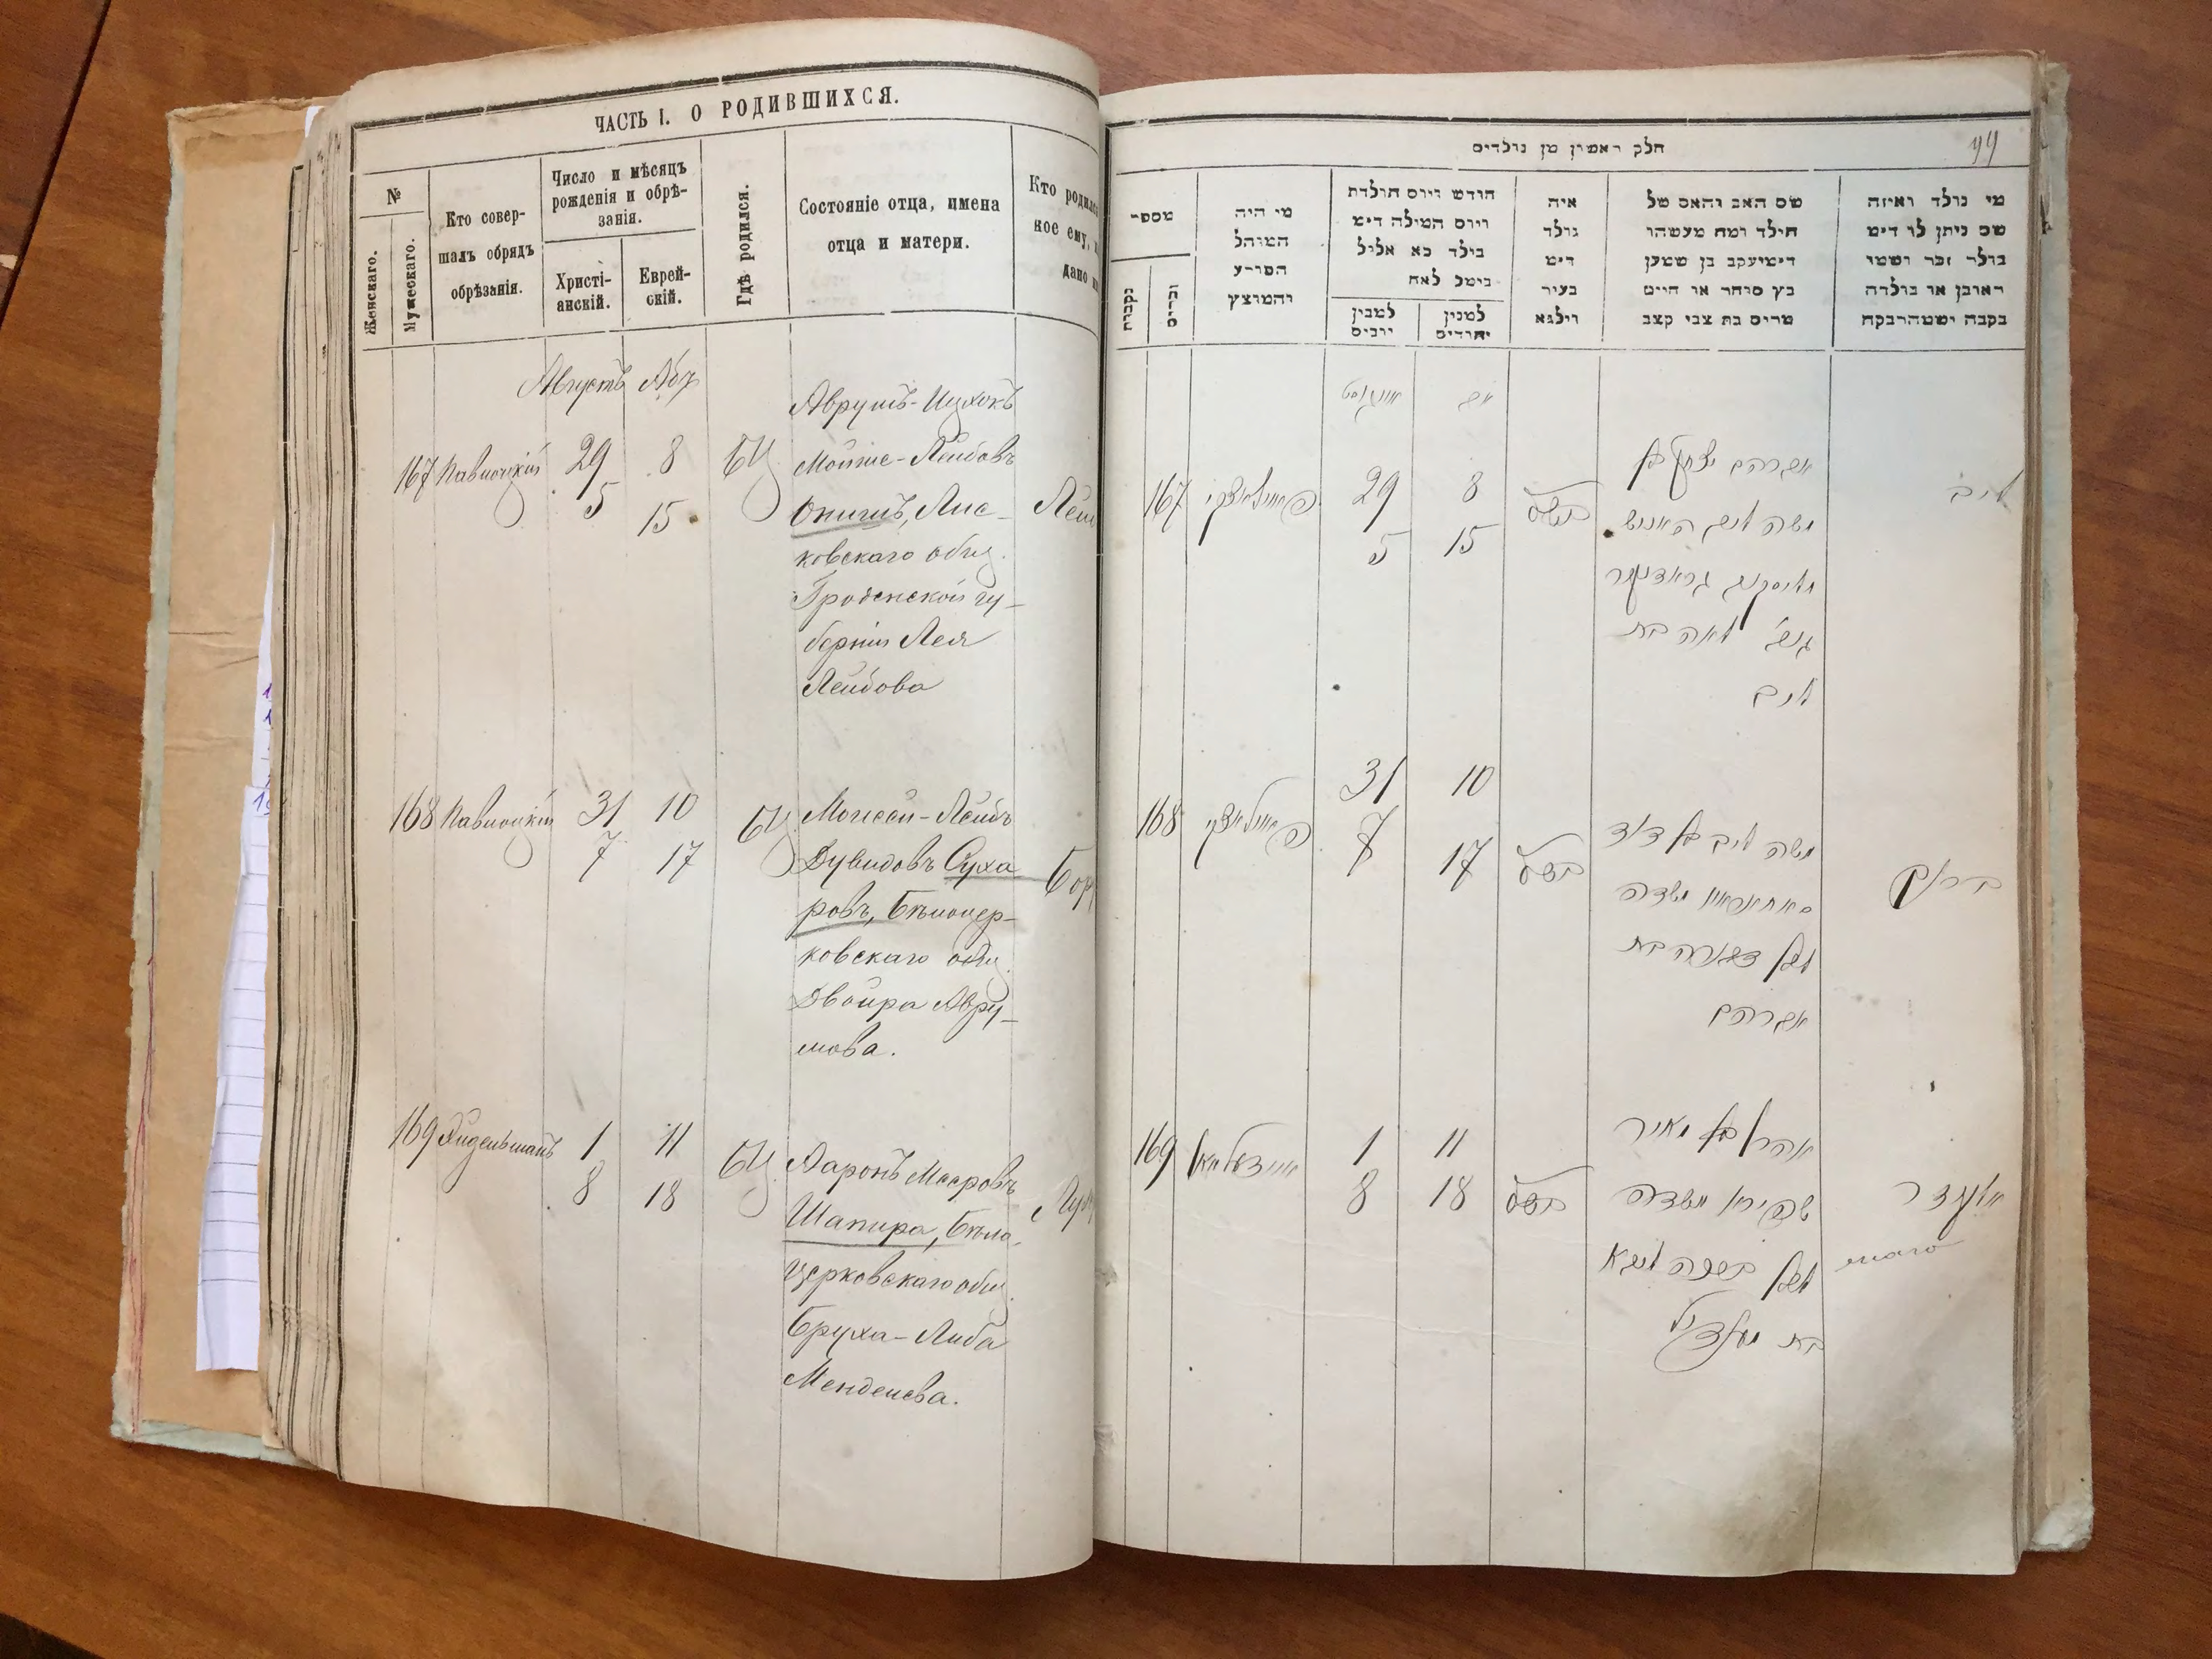 ЧАСТЬ I. О РОДИВШИХСЯ.
№
Женскаго.
Мужескаго.
Кто совер-
шалъ обрядъ
обрѣзанія.
Число и мѣсяцъ
рожденія и обрѣ-
занія.
Христі-
анскій.
Еврей-
скій.
Гдѣ родился.
Состояніе отца, имена
отца и матери.
Кто родилс
кое ему, и
дано и
Августъ Абъ
167 Павлоцкій 29 8 БЦ
5 15
Аврумъ-Ицхокъ
Мойше-Лейбовъ
Лис-
ковскаго общ.
Гродненской гу-
берніи Лея
Лейбова
Лей
168 Павлоцкій 31 10 БЦ
7 17
Моисей-Лейбъ
Дувидовъ Суха-
ровъ, Бѣлоцер-
ковскаго общ.
Двойра Авру-
мова.
Бор
169 Айдельманъ 1 11 БЦ
8 18
Ааронъ Мееровъ
Шапира, Бѣло-
церковскаго общ.
Бруха-Либа
Менделева.
חלק ראשון מן נולדים
99
מספר
נקבות
זכרים
מי היה
המוהל
הפורע
והמוצץ
חודש ויום תולדת
ויום המילה דימ
בילד כא אליל
נימל לאח
למנין
יהודים
איה
נולד
דימ
בעיר
ווילנא
שם האב והאם של
הילד ומה מעשהו
דימיעקב בן שמען
כץ סוחר או חיים
מרים בת צבי קצב
מי נולד ואיזה
שם ניתן לו דימ
נולד זכר ושמו
ראובן או נולדה
נקבה ושמה רבקה
אויגוסט אב
167 29 8
5 15
אברהם יצחק בן
משה ליב
לאה בת
ליב
ליב
168 31 10
7 17
משה ליב בן דוד
סאחאראוו משדה
לבן דבורה בת
אברהם
ברוך
169 אוידעלמאן 1 11
8 18
אהרן בן מאיר
שפירא משדה
לבן ברכה ליבא
בת מענדיל